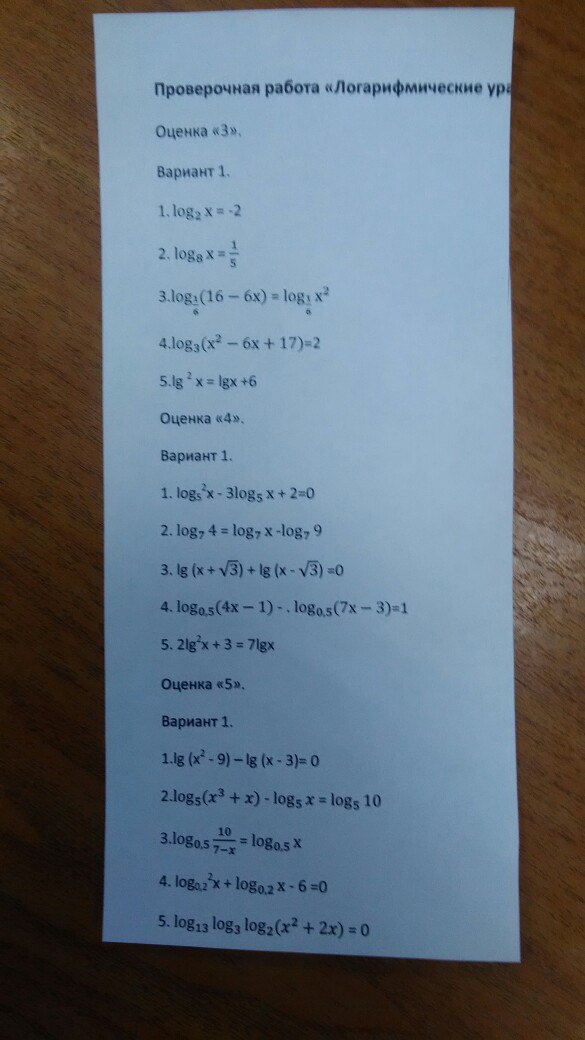 Проверочная работа «Логарифмические ура
Оценка «3».
Вариант 1.
1. log₂ x = -2
2. log₈ x = 1/5
3.log₁/₆(16 − 6x) = log₁/₆ x²
4.log₃(x² − 6x + 17)=2
5.lg ² x = lgx +6
Оценка «4».
Вариант 1.
1. log₅²x - 3log₅ x + 2=0
2. log₇ 4 = log₇ x -log₇ 9
3. lg (x + √3) + lg (x - √3) =0
4. log₀,₅(4x − 1) - . log₀,₅(7x − 3)=1
5. 2lg²x + 3 = 7lgx
Оценка «5».
Вариант 1.
1.lg (x² - 9) – lg (x - 3)= 0
2.log₅(x³ + x) - log₅ x = log₅ 10
3.log₀,₅ 10/(7−x) = log₀,₅ x
4. log₀,₂²x + log₀,₂ x - 6 =0
5. log₁₃ log₃ log₂(x² + 2x) = 0